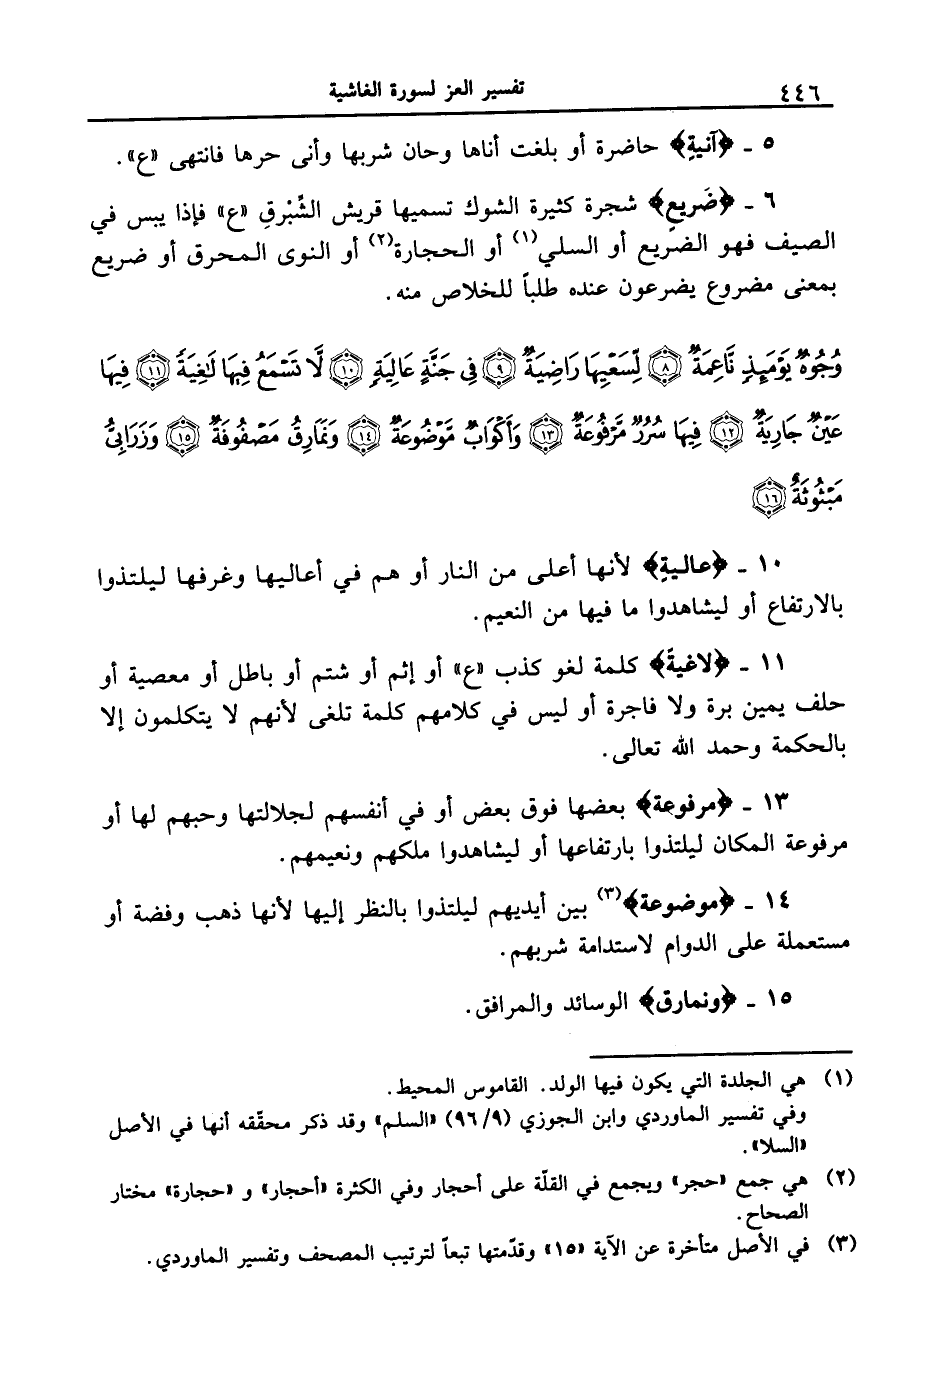 ٤٤٦ تفسير العز لسورة الغاشية
٥ ـ ﴿آنيةٍ﴾ حاضرة أو بلغت أناها وحان شربها وأنى حرها فانتهى «ع».
٦ ـ ﴿ضَريعٍ﴾ شجرة كثيرة الشوك تسميها قريش الشِّبْرقِ «ع» فإذا يبس في
الصيف فهو الضريع أو السلي(١) أو الحجارة(٢) أو النوى المحرق أو ضريع
بمعنى مضروع يضرعون عنده طلباً للخلاص منه.
وُجُوهٌ يَوْمَئِذٍ نَّاعِمَةٌ ﴿٨﴾ لِّسَعْيِهَا رَاضِيَةٌ ﴿٩﴾ فِي جَنَّةٍ عَالِيَةٍ ﴿١٠﴾ لَّا تَسْمَعُ فِيهَا لَاغِيَةً ﴿١١﴾ فِيهَا
عَيْنٌ جَارِيَةٌ ﴿١٢﴾ فِيهَا سُرُرٌ مَّرْفُوعَةٌ ﴿١٣﴾ وَأَكْوَابٌ مَّوْضُوعَةٌ ﴿١٤﴾ وَنَمَارِقُ مَصْفُوفَةٌ ﴿١٥﴾ وَزَرَابِيُّ
مَبْثُوثَةٌ ﴿١٦﴾
١٠ ـ ﴿عاليةٍ﴾ لأنها أعلى من النار أو هم في أعاليها وغرفها ليلتذوا
بالارتفاع أو ليشاهدوا ما فيها من النعيم.
١١ ـ ﴿لاغيةً﴾ كلمة لغو كذب «ع» أو إثم أو شتم أو باطل أو معصية أو
حلف يمين برة ولا فاجرة أو ليس في كلامهم كلمة تلغى لأنهم لا يتكلمون إلا
بالحكمة وحمد الله تعالى.
١٣ ـ ﴿مرفوعة﴾ بعضها فوق بعض أو في أنفسهم لجلالتها وحبهم لها أو
مرفوعة المكان ليلتذوا بارتفاعها أو ليشاهدوا ملكهم ونعيمهم.
١٤ ـ ﴿موضوعة﴾(٣) بين أيديهم ليلتذوا بالنظر إليها لأنها ذهب وفضة أو
مستعملة على الدوام لاستدامة شربهم.
١٥ ـ ﴿ونمارق﴾ الوسائد والمرافق.
(١) هي الجلدة التي يكون فيها الولد. القاموس المحيط.
وفي تفسير الماوردي وابن الجوزي (٩/ ٩٦) «السلم» وقد ذكر محقّقه أنها في الأصل
«السلا».
(٢) هي جمع «حجر» ويجمع في القلّة على أحجار وفي الكثرة «أحجار» و «حجارة» مختار
الصحاح.
(٣) في الأصل متأخرة عن الآية «١٥» وقدّمتها تبعاً لترتيب المصحف وتفسير الماوردي.